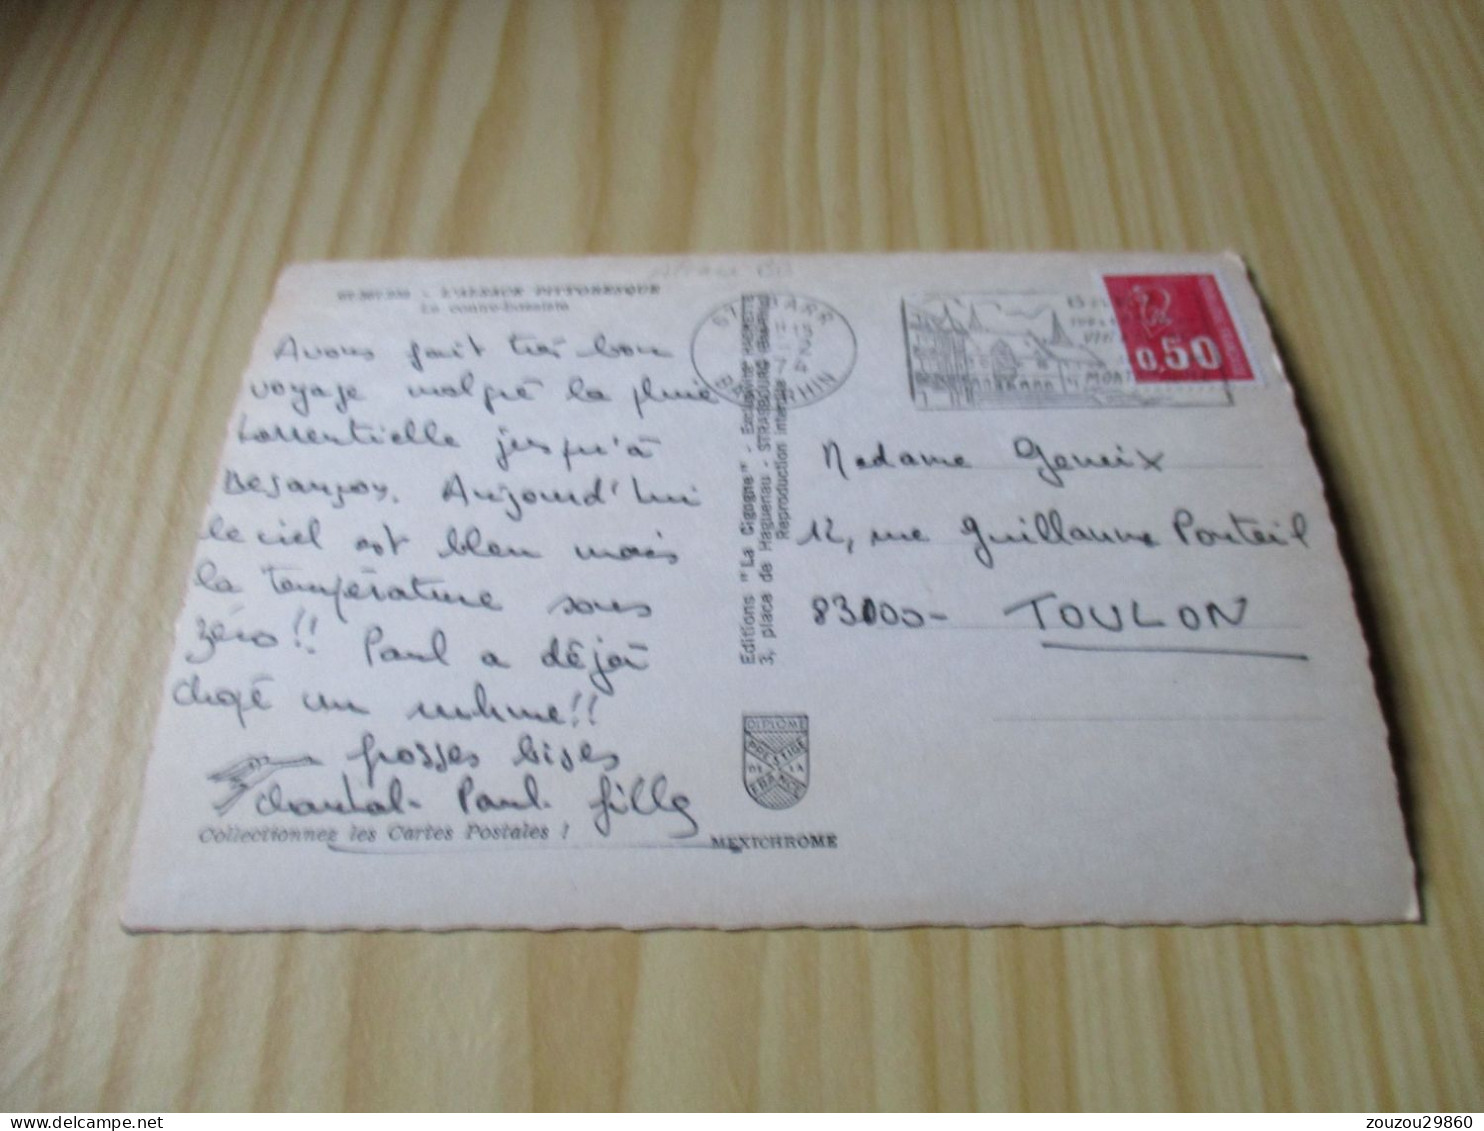 L'ALSACE PITTORESQUE
Avons fait très bon
voyage malgré la pluie
torrentielle jusqu'à
Besançon. Aujourd'hui
le ciel est bleu mais
la température sous
zéro!! Paul a déjà
chopé un rhume!!
grosses bises
Chantal - Paul - Gilles
Collectionnez les Cartes Postales !
MEXICHROME
Editions "La Cigogne" - Exclusivité HACHETTE
3, place de Haguenau - STRASBOURG
Reproduction interdite
DIPLOME
PRESTIGE
DE LA
FRANCE
BARR
BAS RHIN
0,50
Madame Geneix
12, rue Guillaume Porteil
83000 - TOULON
zouzou29860